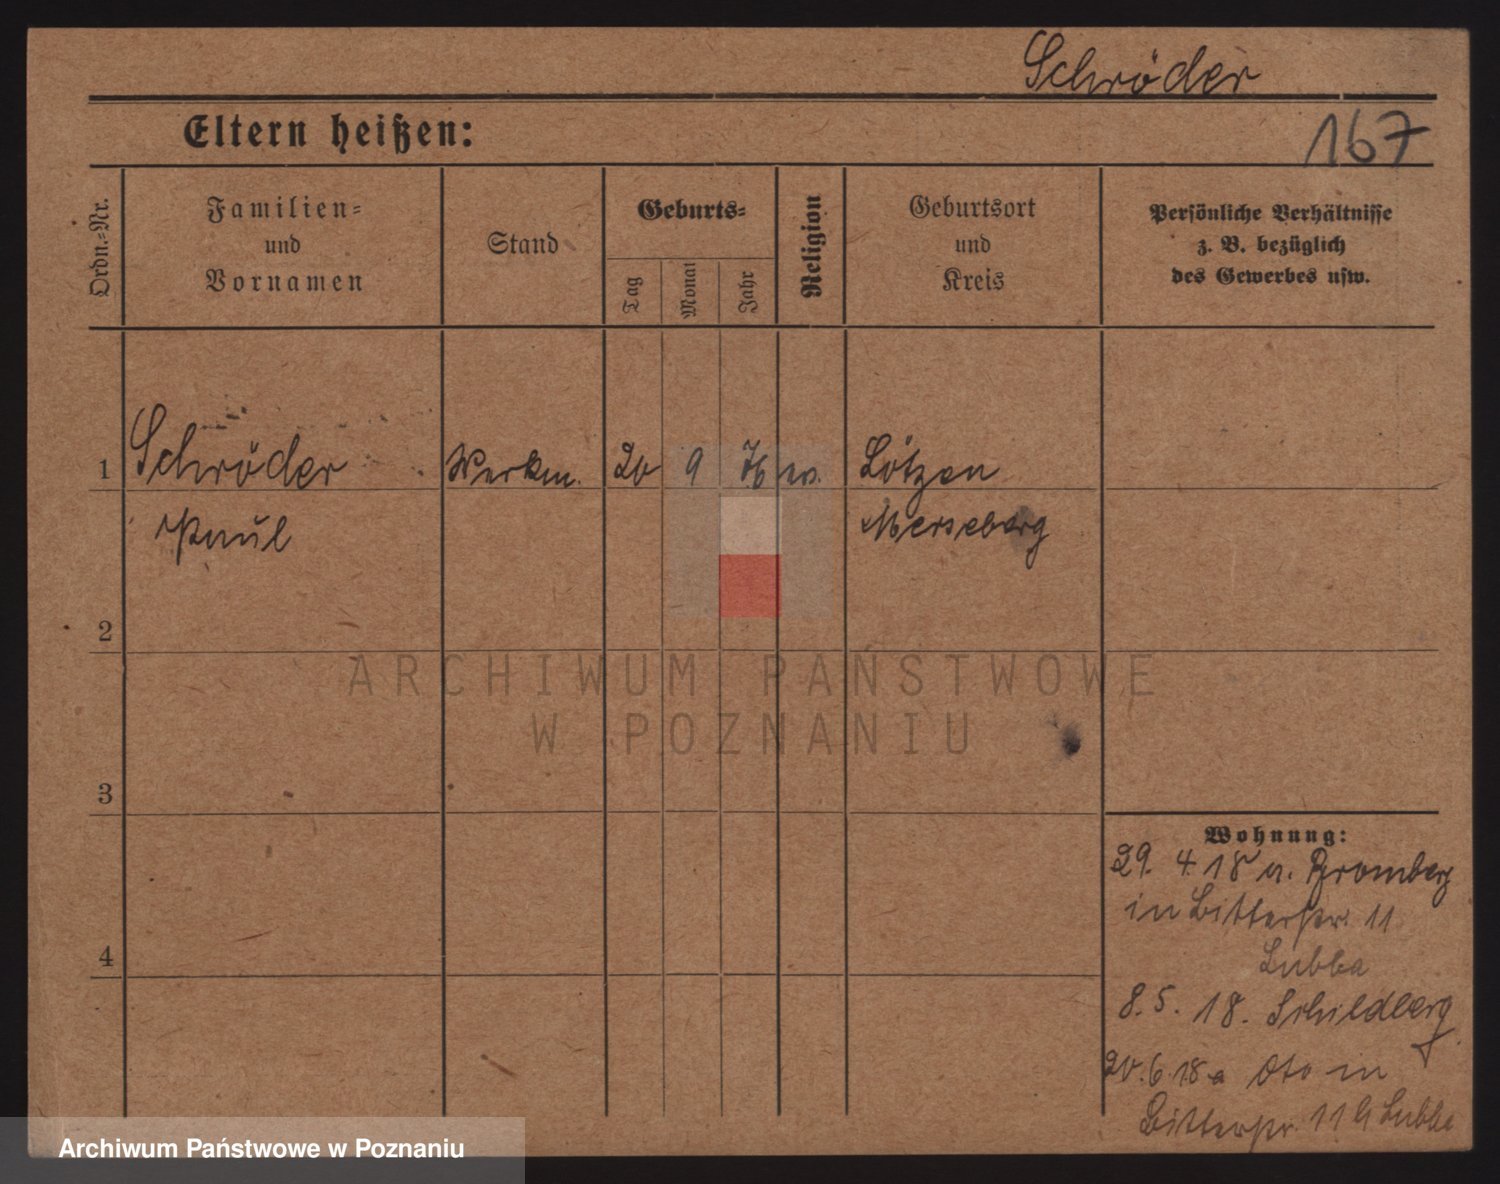 Schröder
Eltern heißen:
167
Ordn.-Nr.
Familien-
und
Vornamen
Stand
Geburts-
Tag
Monat
Jahr
Religion
Geburtsort
und
Kreis
Persönliche Verhältnisse
z. B. bezüglich
des Gewerbes usw.
1 Schröder Werkm. 20 9 76 ev. Lötzen
Paul Merseberg
2
ARCHIWUM PAŃSTWOWE
W POZNANIU
3
Wohnung:
29. 4. 18 a. Bromberg
in Bitterstr. 11
Lubba
4
8. 5. 18. Schildberg
20. 6. 18 a Oto in
Bitterstr. 11 b Lubba
Archiwum Państwowe w Poznaniu